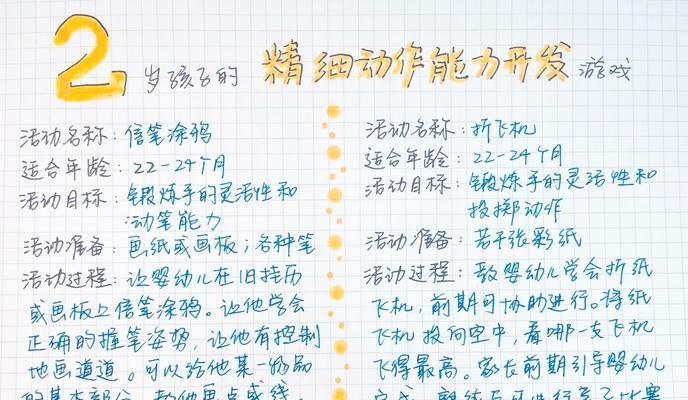 2岁孩子的 精细动作能力开发 游戏
活动名称：信笔涂鸦
适合年龄：22-24个月
活动目标：锻炼手的灵活性和
动笔能力
活动准备：画纸或画板；各种笔
活动过程：让婴幼儿在旧挂历
或画板上信笔涂鸦。让他学会
正确的握笔姿势，让他有控制
地画道道。可以给他某一物品
的基本部分，教他画点或线，
活动名称：折飞机
适合年龄：22-24个月
活动目标：锻炼手的灵活性和
投掷动作
活动准备：若干张彩纸
活动过程：教婴幼儿学会折纸
飞机，前期可协助进行。将纸
飞机投向空中，看哪一支飞机
飞得最高。家长前期引导婴幼儿
完成，熟练后可进行亲子比赛